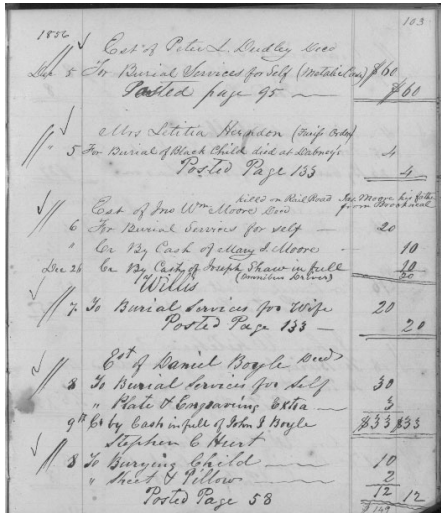 103
1856
Est of Peter L. Dudley Decd
Dec 5 For Burial Services for Self (Metalic Case) $60
Posted page 95 — $60
Mrs Letitia Herndon
" 5 For Burial of Black Child died at Dabney's 4
Posted Page 133 4
killed on Rail Road
Est of Jno Wm Moore Decd
from Brookneal
6 For Burial Services for self — 20
" Cr By Cash of Mary J. Moore — 10
Dec 26 Cr By Cash of Joseph Shaw in full 10
(Omnibus Driver) 20
Willis
7 To Burial Services for Wife 20
Posted Page 133 — 20
Est of Daniel Boyle Decd
8 To Burial Services for Self 30
" Plate & Engraving Extra — 3
9th Cr by Cash in full of John J Boyle $33 $33
Stephen C Hurt
8 To Burying Child — 10
" Sheet & Pillow — 2
12 12
Posted Page 58